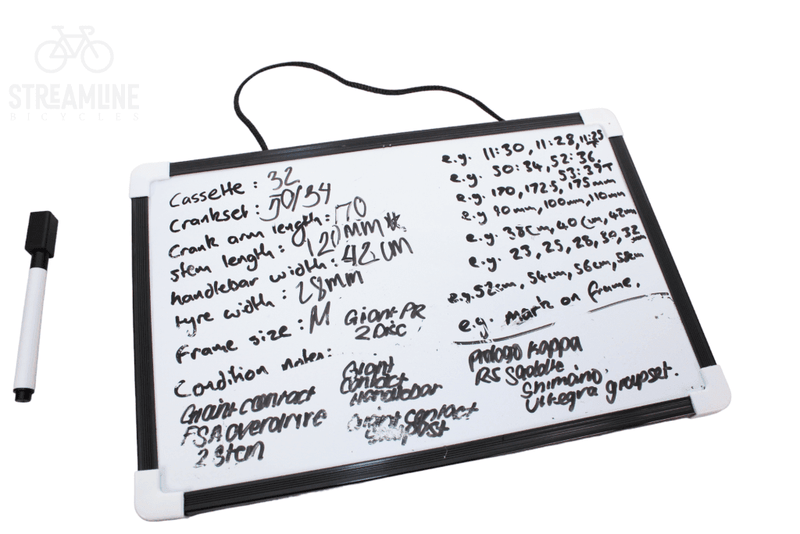 STREAMLINE
BICYCLES
Cassette: 32
Crankset: 50/34
Crank arm length: 170
Stem length: 120mm
handlebar width: 42cm
tyre width: 28mm
Frame size: M
Giant PR
2 Disc
Condition notes:
Giant contract
FSA overdrive
2 Stem
Giant
Contact
Handlebar
Giant contact
e.g. 11:30, 11:28, 11:25
e.g. 50:34, 52:36,
53:39T
e.g. 170, 172.5, 175mm
e.g. 90mm, 100mm, 110mm
e.g. 38cm, 40cm, 42cm
e.g. 23, 25, 28, 30, 32mm
e.g. 52cm, 54cm, 56cm, 58cm
e.g. mark on frame.
Prologo Kappa
RS Saddle
Shimano
Ultegra groupset.